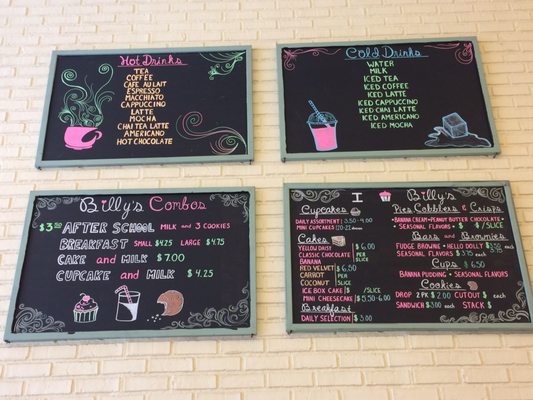 Hot Drinks
TEA
COFFEE
CAFE AU LAIT
ESPRESSO
MACCHIATO
CAPPUCCINO
LATTE
MOCHA
CHAI TEA LATTE
AMERICANO
HOT CHOCOLATE
Cold Drinks
WATER
MILK
ICED TEA
ICED COFFEE
ICED LATTE
ICED CAPPUCCINO
ICED CHAI LATTE
ICED AMERICANO
ICED MOCHA
Billy's Combos
AFTER SCHOOL MILK and 3 COOKIES
BREAKFAST SMALL $4.25 LARGE $4.75
CAKE and MILK $7.00
CUPCAKE and MILK $4.25
I Billy's
Cupcakes
DAILY ASSORTMENT $3.50-4.00
MINI CUPCAKES
Cakes
YELLOW DAISY
CLASSIC CHOCOLATE
BANANA
$6.00
PER
SLICE
RED VELVET
CARROT
COCONUT
$6.50
PER
SLICE
ICE BOX CAKE $ /SLICE
MINI CHEESECAKE $5.50-6.00
Breakfast
DAILY SELECTION $3.00
Pies Cobblers & Crisps
BANANA CREAM • PEANUT BUTTER CHOCOLATE •
SEASONAL FLAVORS $ $ /SLICE
Bars and Brownies
FUDGE BROWNIE • HELLO DOLLY
SEASONAL FLAVORS $3.75 each
Cups
$6.50
BANANA PUDDING • SEASONAL FLAVORS
Cookies
DROP 2PK $2.00 CUTOUT $ each
SANDWICH $3.00 each STACK $